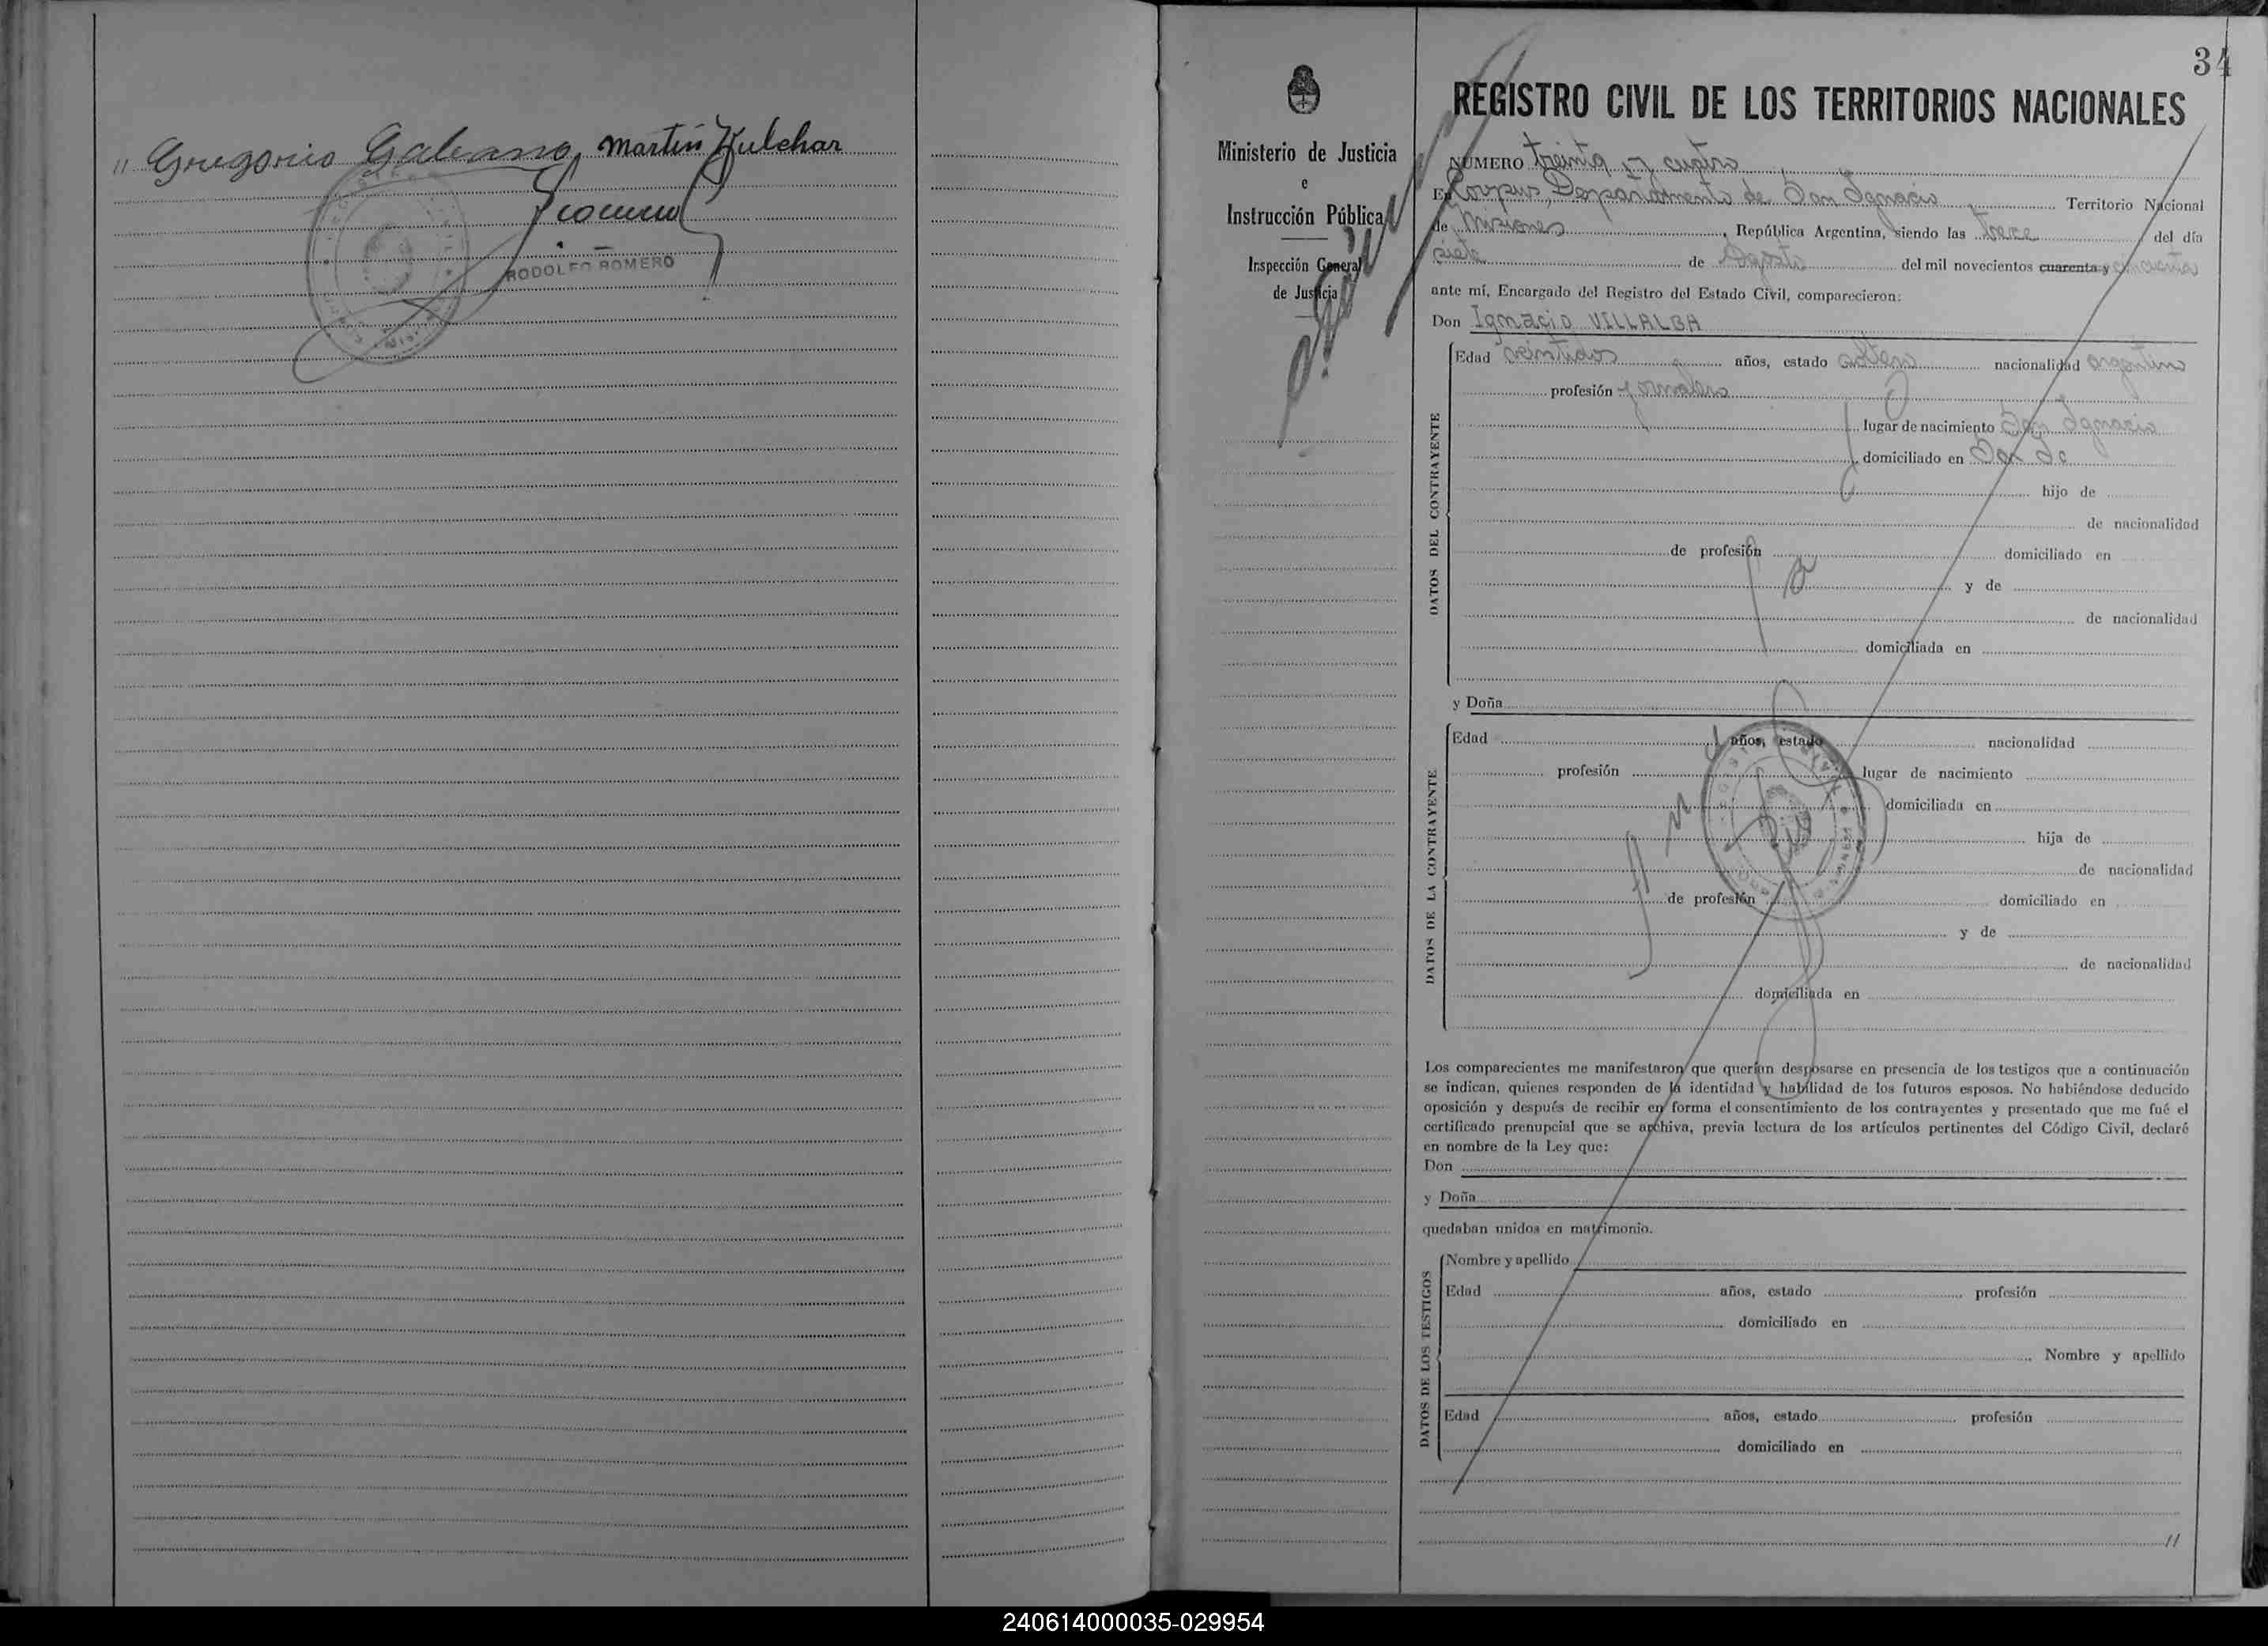 " Gregorio Galeano, Martin Kulchar
RODOLFO ROMERO
34
Ministerio de Justicia
e
Instrucción Pública
Inspección General
de Justicia
REGISTRO CIVIL DE LOS TERRITORIOS NACIONALES
NÚMERO treinta y cuatro
En Corpus, Departamento de San Ignacio Territorio Nacional
de Misiones, República Argentina, siendo las trece del día
siete de Agosto del mil novecientos cuarenta y cincuenta
ante mí, Encargado del Registro del Estado Civil, comparecieron:
Don Ignacio VILLALBA
DATOS DEL CONTRAYENTE
Edad veintidos años, estado soltero nacionalidad argentino
profesión jornalero
lugar de nacimiento San Ignacio
domiciliado en
hijo de
de nacionalidad
de profesión domiciliado en
y de
de nacionalidad
domiciliada en
y Doña
DATOS DE LA CONTRAYENTE
Edad años, estado nacionalidad
profesión lugar de nacimiento
domiciliada en
hija de
de nacionalidad
de profesión domiciliado en
y de
de nacionalidad
domiciliada en
Los comparecientes me manifestaron que querían desposarse en presencia de los testigos que a continuación
se indican, quienes responden de la identidad y habilidad de los futuros esposos. No habiéndose deducido
oposición y después de recibir en forma el consentimiento de los contrayentes y presentado que me fué el
certificado prenupcial que se archiva, previa lectura de los artículos pertinentes del Código Civil, declaré
en nombre de la Ley que:
Don
y Doña
quedaban unidos en matrimonio.
DATOS DE LOS TESTIGOS
Nombre y apellido
Edad años, estado profesión
domiciliado en
Nombre y apellido
Edad años, estado profesión
domiciliado en
//
240614000035-029954